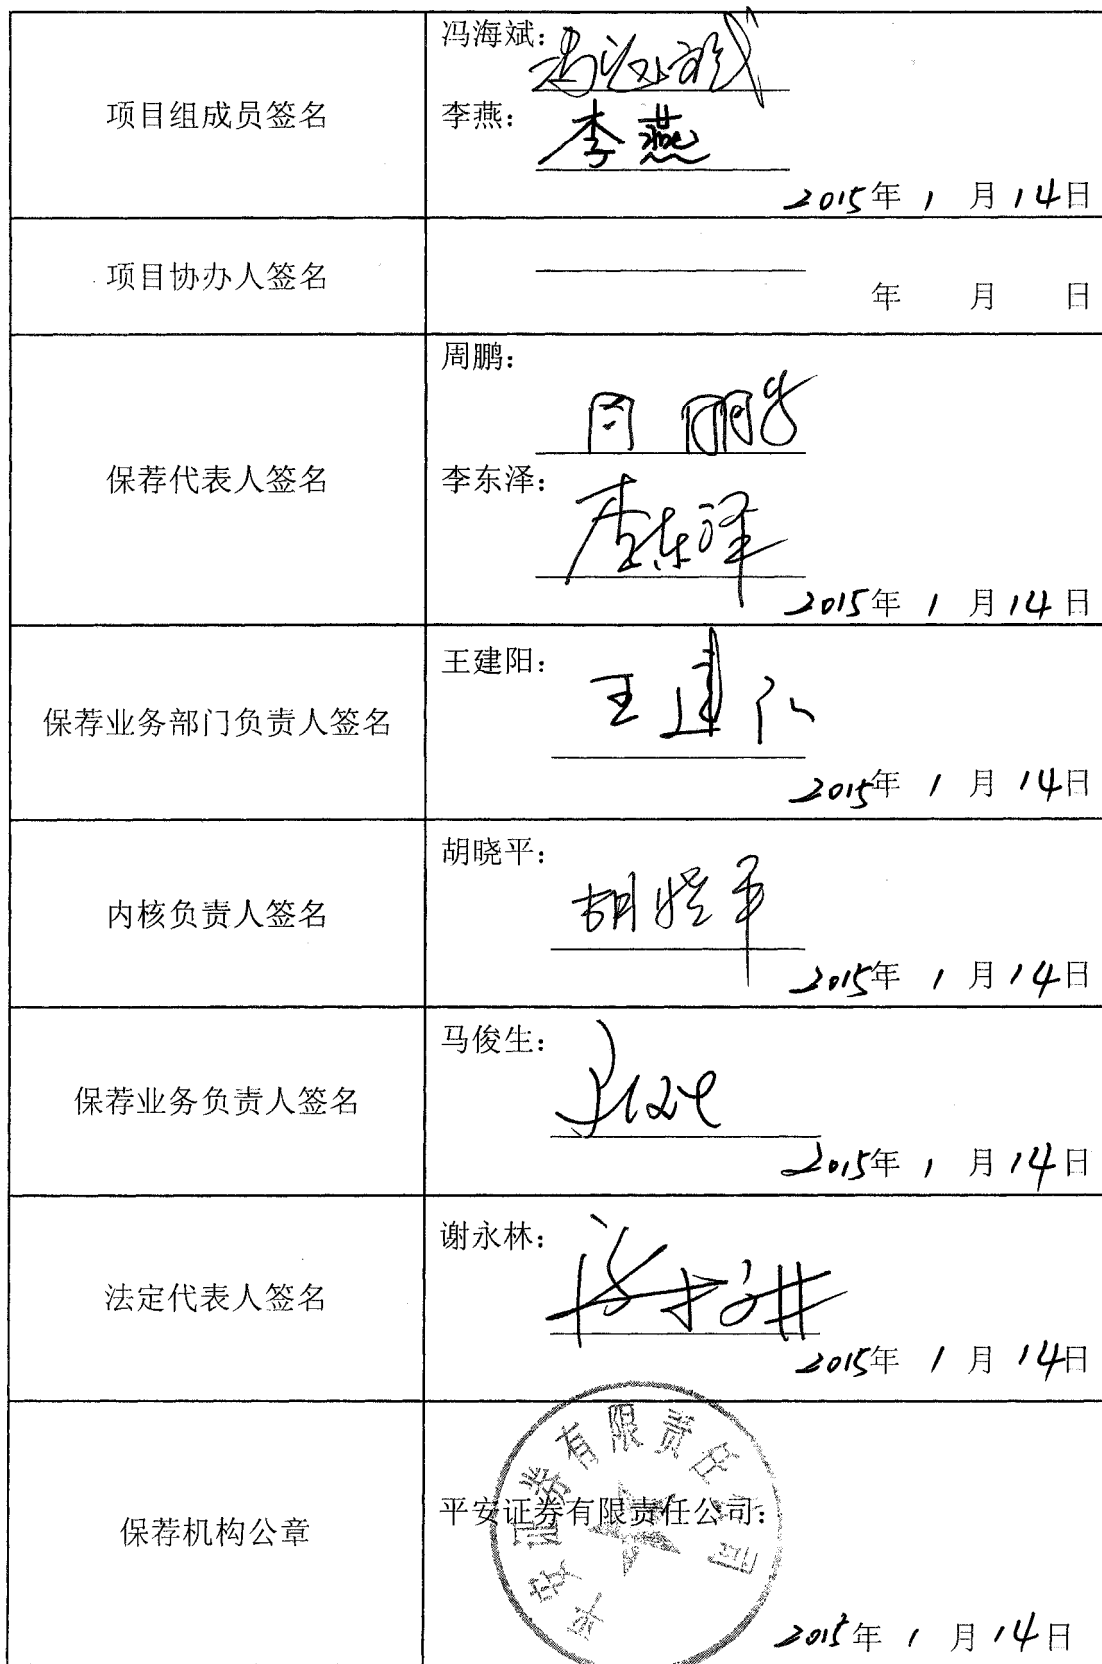 项目组成员签名
冯海斌：
李燕：
李燕
2015年 1 月 14日
项目协办人签名
年 月 日
保荐代表人签名
周鹏：
周鹏
李东泽：
李东泽
2015年 1 月 14日
保荐业务部门负责人签名
王建阳：
王建阳
2015年 1 月 14日
内核负责人签名
胡晓平：
胡晓平
2015年 1 月 14日
保荐业务负责人签名
马俊生：
2015年 1 月 14日
法定代表人签名
谢永林：
2015年 1 月 14日
保荐机构公章
平安证券有限责任公司：
平安证券有限责任公司
2015年 1 月 14日